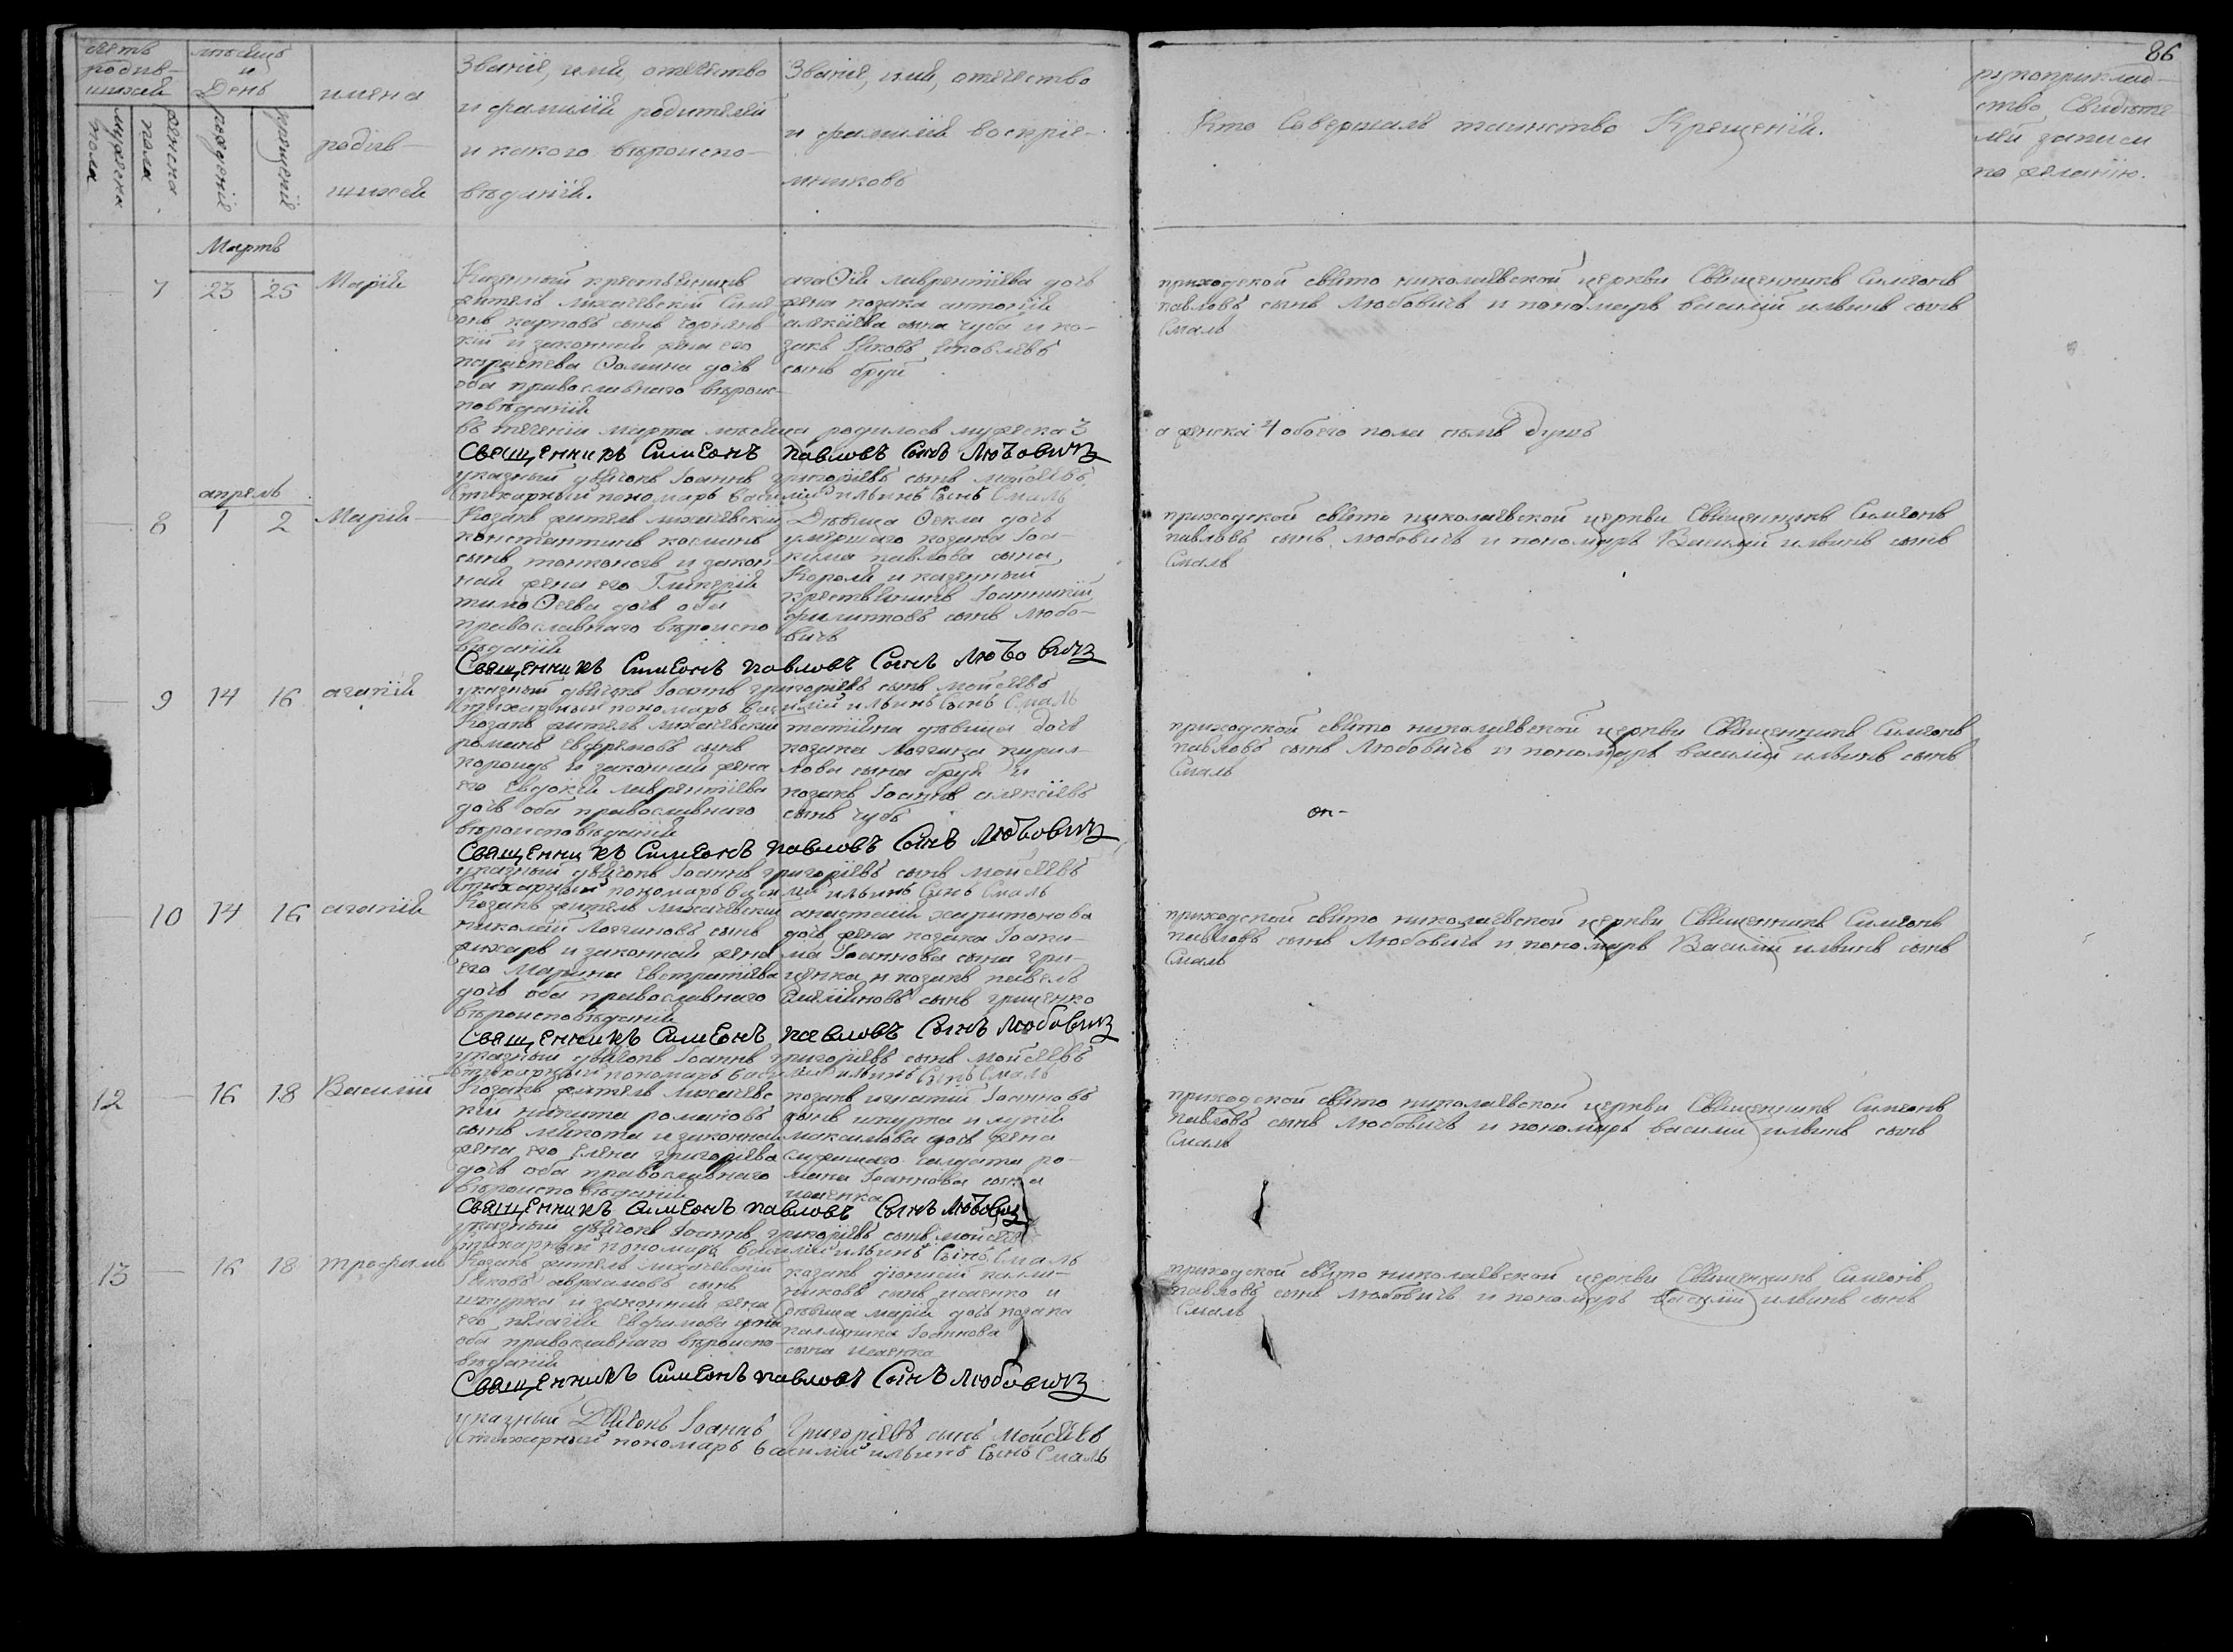 86
летъ
родив-
шихся
мѣсяцъ
и
День
мужеска
пола
женска
пола
рожденія
крещенія
имена
родив-
шихся
Званіе, имя, отечество
и фамилія родителей
и какого вѣроиспо-
вѣданія.
Званіе, имя, отечество
и фамилія воспріе-
мниковъ
Кто Совершалъ таинство Крещенія.
рукоприклад-
ство Свидѣте
лей записи
по желанію.
Мартъ
7 23 25 Марія
Казенный крестьянинъ
житель Лихачевскій Симе
онъ карповъ сынъ
кій и законная жена его
параскева Ѳомина дочь
оба православнаго вѣроис-
повѣданія
агаѲія лаврентіева дочь
жена козака антонія
алексіева сына чуба и ко-
закъ Іяковъ яковлевъ
сынъ бруй
приходской свято николаевской церкви Священникъ Симеонъ
павловъ сынъ Любовичъ и пономарь василій ильинъ сынъ
Смаль
въ теченіи марта мѣсяца родилось мужеска 3
а женска 4 обоего пола семь душъ
Священникъ Симеонъ павловъ Сынъ Любовичъ
указный дьячокъ Іоаннъ григоріевъ сынъ мойсеевъ
Стихарный пономарь василій ильинъ Сынъ Смаль
апрель
8 1 2 Марія
Козакъ житель лихачевскій
константинъ косминъ
сынъ тонконогъ и закон
ная жена его Гликерія
тимоѲеева дочь оба
православнаго вѣроиспо
вѣданія
Дѣвица Ѳекла дочь
умершаго козака Іоа-
кима павлова сына
Короля и казенный
крестьянинъ Іоанникій
филиповъ сынъ Любо-
вичъ
приходской свято николаевской церкви Священникъ Симеонъ
павловъ сынъ любовичъ и пономарь Василій ильинъ сынъ
Смаль
Священникъ Симеонъ павловъ Сынъ Любовичъ
указный дьячокъ Іоаннъ григоріевъ сынъ мойсеевъ
Стихарный пономарь василій ильинъ Сынъ Смаль
9 14 16 агапія
Козакъ житель лихачевскій
романъ Евфремовъ сынъ
король и законная жена
его Евдокія лаврентіева
дочь оба православнаго
вѣроисповѣданія
татіяна дѣвица дочь
козака логгина кирил-
лова сына бруя и
козакъ Іоаннъ алексіевъ
сынъ чубъ
приходской свято николаевской церкви Священникъ Симеонъ
павловъ сынъ Любовичъ и пономарь василій ильинъ сынъ
Смаль
он-
Священникъ Симеонъ павловъ Сынъ Любовичъ
указный дьячокъ Іоаннъ григоріевъ сынъ мойсеевъ
Стихарный пономарь василій ильинъ Сынъ Смаль
10 14 16 агапія
Козакъ житель лихачевскій
николай Логгиновъ сынъ
и законная жена
его Марина Евстратіева
дочь оба православнаго
вѣроисповѣданія
анастасія харитонова
дочь жена козака Іоаки-
ма Іоаннова сына гри-
ценка и козакъ павелъ
сынъ гриценко
приходской свято николаевской церкви Священникъ Симеонъ
павловъ сынъ Любовичъ и пономарь Василій ильинъ сынъ
Смаль
Священникъ Симеонъ павловъ Сынъ Любовичъ
указный дьячокъ Іоаннъ григоріевъ сынъ мойсеевъ
Стихарный пономарь василій ильинъ Сынъ Смаль
12 16 18 Василій
Козакъ житель лихачевс
кій никита романовъ
сынъ и законная
жена его Елена григоріева
дочь оба православнаго
вѣроисповѣданія
козакъ игнатій Іоанновъ
сынъ шкурка и лукія
максимова дочь жена
служащаго салдата ро-
мана Іоаннова сына
исаенка
приходской свято николаевской церкви Священникъ Симеонъ
павловъ сынъ Любовичъ и пономарь василій ильинъ сынъ
Смаль
Священникъ Симеонъ павловъ Сынъ Любовичъ
указный дьячокъ Іоаннъ григоріевъ сынъ мойсеевъ
Стихарный пономарь василій ильинъ Сынъ Смаль
13 16 18 трофимъ
Козакъ житель лихачевскій
Іяковъ авраамовъ сынъ
шкурка и законная жена
его пелагія Евфимова дочь
оба православнаго вѣроиспо-
вѣданія
козакъ діонисій калли-
никовъ сынъ исаенко и
дѣвица марія дочь козака
каллиника Іоаннова
сына исаенка
приходской свято николаевской церкви Священникъ Симеонъ
павловъ сынъ любовичъ и пономарь василій ильинъ сынъ
Смаль
Священникъ Симеонъ павловъ Сынъ Любовичъ
указный Дьячокъ Іоаннъ Григоріевъ сынъ Мойсеевъ
Стихарный пономарь василій ильинъ Сынъ Смаль